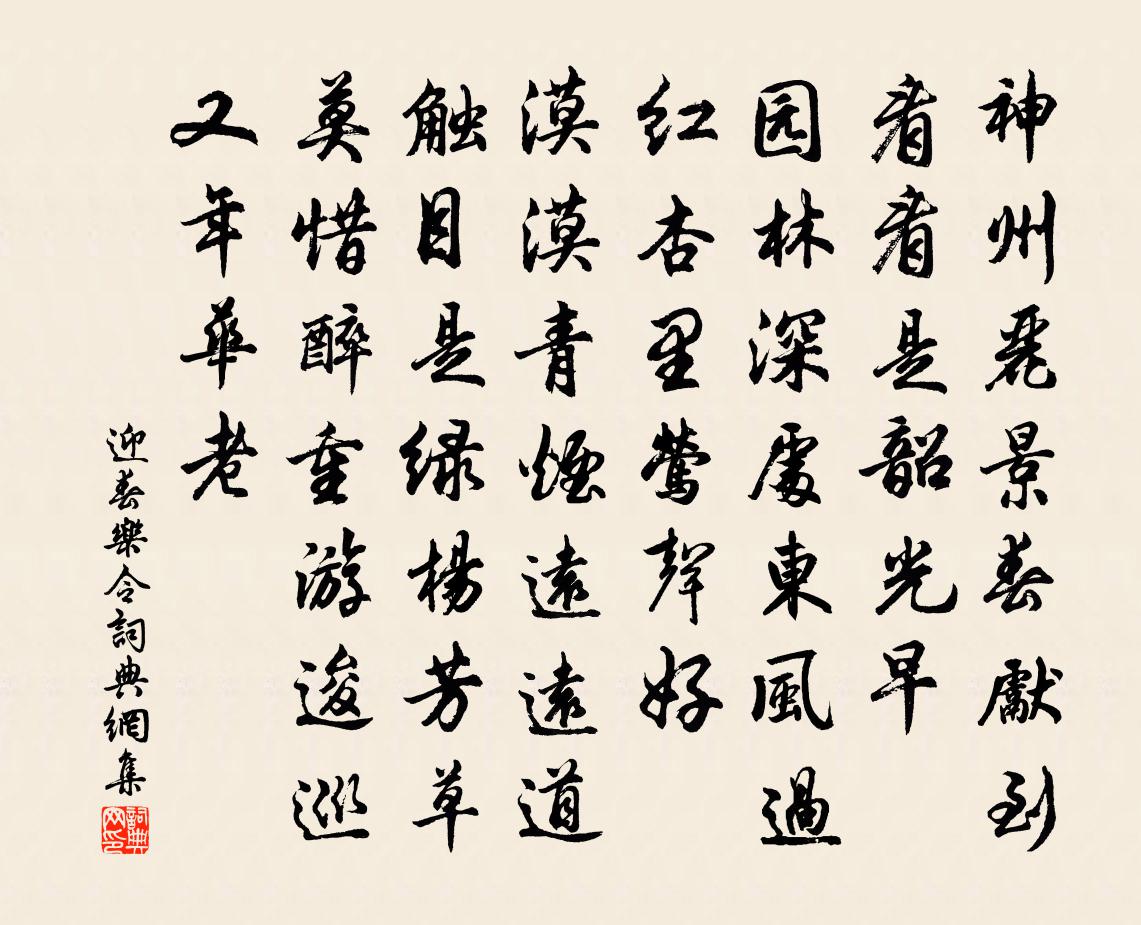 神州麗景春獻到
看看是韶光早
园林深處東風過
红杏里鶯聲好
漠漠青煙遠遠道
触目是绿楊芳草
莫惜醉重游逡巡
又年華老
迎春樂令詞典網集
詞典网印